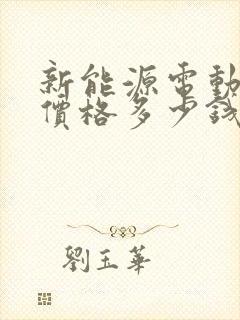 新能源電動
價格多少錢
劉玉華